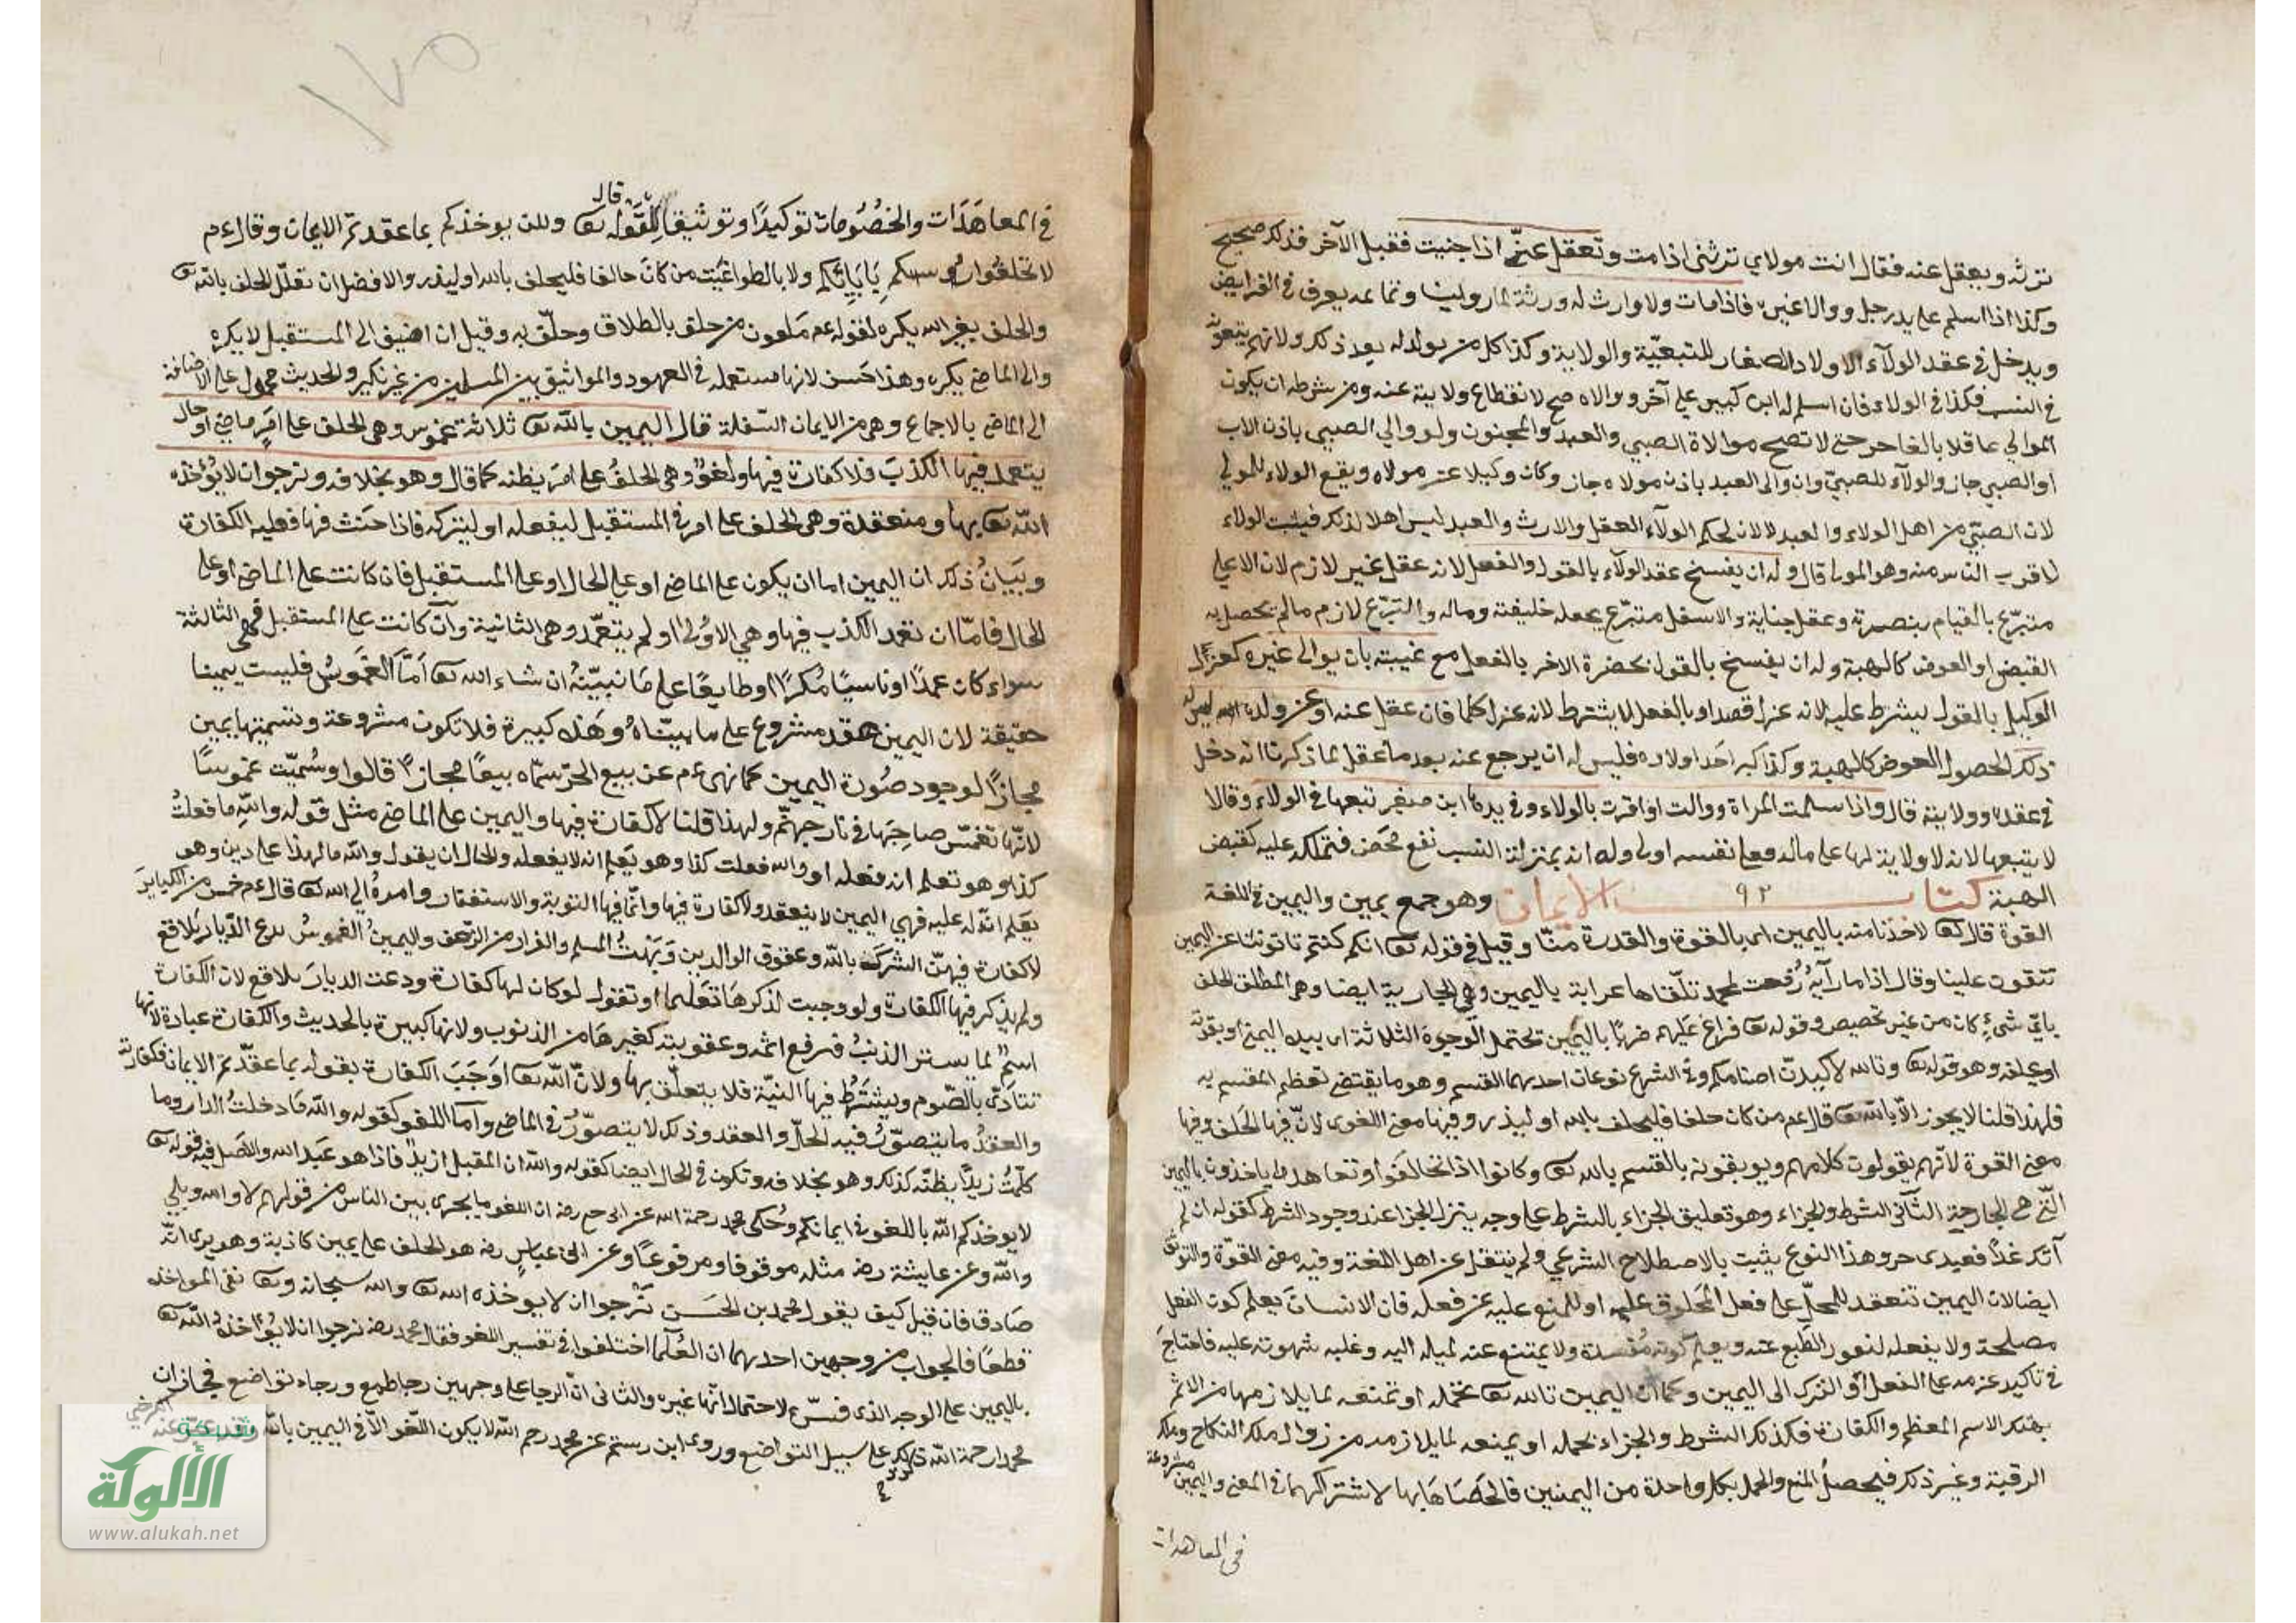 ترثه ويعقل عنه فقال انت مولاي ترثني اذا مت وتعقل عنّي اذا جنيت فقبل الآخر فذلك صحيح
وكذا اذا اسلم على يد رجل ووالا غيره فاذا مات ولا وارث له ورثة لما روينا وتمامه يعرف في الفرايض
ويدخل في عقد الولآء الاولاد الصغار للتبعيّة والولاية وكذا كل من يولد له بعد ذلك ولانهم يتبعونه
في النسب فكذا في الولاء فان اسلم له ابن كبير على آخر ووالاه صح لانقطاع ولايته عنه ومن شرطه ان يكون
الموالي عاقلا بالغا حر حتى لا تصح موالاة الصبي والعبد والمجنون ولو والي الصبي باذن الاب
او الصبي جاز والولآء للصبيّ وان والى العبد باذن مولاه جاز وكان وكيلا عن مولاه ويقع الولاء للمولي
لان الصبيّ من اهل الولاء والعبد لا لان لحكم الولآء العقل والارث والعبد ليس اهلا لذلك فيثبت الولاء
لاقرب الناس منه وهو المولى قال وله ان يفسخ عقد الولآء بالقول والفعل لانه عقل غير لازم لان الاعلى
متبرّع بالقيام بنصرة وعقل جناية والاسفل متبرّع بجعله خليفته وماله والتبرّع لازم مالم يحصل به
القبض او العوض كالهبة وله ان يفسخ بالقول بحضرة الاخر بالفعل مع غيبته بان يوالى غيره كعزل
الوكيل بالقول يشرط عليه لانه عزل قصدا وبالفعل لا يشترط لانه عزل كلما فان عقل عنه او عن ولده ليس له
ذلك لحصول العوض كالهبة وكذا كبر احد اولاده فليس له ان يرجع عنه بعد ما عقل لما ذكرنا انه دخل
في عقده وولايته قال واذا سلمت المراة ووالت او اقرت بالولاء وفي يدها ابن صغير تبعها في الولاء وقالا
لا يتبعها لانه لا ولاية لها على ماله فعلى نفسه اولى وله انه بمنزلة النسب نفع محض فتملكه عليه كقبض
الهبة كتاب ٩٢ الايمان وهو جمع يمين واليمين في اللغة
القوة قال تعا لاخذنا منه باليمين اى بالقوة والقدرة منّا وقيل في قوله تعا انكم كنتم تاتوننا عن اليمين
تتقوون علينا وقال اذا ما رآية رُفعت لمجد تلقّاها عرابة باليمين وهى الجارية ايضا وهى المطلق الحلف
بايّ شيءٍ كان من غير تخصيص وقوله تعا فراغ عليهم ضربًا باليمين تحتمل الوجوه الثلاثة اى بيده اليمنى او بقوته
او بحلفه وهو قوله تعا وتالله لاكيدنّ اصنامكم وفي الشرع نوعان احدهما القسم وهو ما يقتضي تعظم المقسم به
فلهذا قلنا لا يجوز الّا بالله تعا قال عم من كان حلفا فليحلف بالله او ليذر وفيها معنى اللغوى لانّ فيها الحلف وفيها
معنى القوة لانّهم يقولون كلامهم ويوبقونه بالقسم بالله تعا وكانوا اذا تحالفوا وتعاهدوا ياخذون باليمين
التي هي الجارحة الثاني الشرط والجزاء وهو تعليق الجزاء بالشرط على وجه ينزل الجزا عند وجود الشرط كقوله ان لم
آتك غدًا فعبدى حر وهذا النوع يثبت بالاصطلاح الشرعي ولم ينتقل عن اهل اللغة وفيه معنى القوّة والتوثق
ايضا لان اليمين تنعقد للحمل على فعل المحلوق عليه او للمنع عليه عن فعله فان الانسان يعلم كون الفعل
مصلحة ولا يفعله لنفور الطّبع عنه ويعلم كونه مُفسدة ولا يمتنع عنه لميله اليه وغلبه شهوته عليه فاحتاج
في تاكيد عزمه على الفعل او الترك الى اليمين وكما ان اليمين بالله تعا تحمله او تمنعه لما يلازمها من الاثم
بهتك الاسم المعظم والكفارة فكذلك الشرط والجزاء يحمله او يمنعه لما يلازمه من زوال ملك النكاح وملك
الرقبة وغير ذلك فيحصل المنع والحمل بكل واحدة من اليمنين فالحقناها بها لاشتراكهما في المعنى واليمين مشروعة
في المعاهدات
في المعاهَدَات والخصُومات توكيدًا وتوثيقا قال تعا ولكن يوخذكم بما عقدتم الايمان وقال عم
لا تحلفوا بآبَائِكم ولا بالطواغيت من كان حالفا فليحلف بالله او ليذر والافضل ان تقلّل الحلف بالله تعا
والحلف بغير الله يكره لقوله عم ملعون من حلف بالطلاق وحلّف به وقيل ان اضيف الى المستقبل لا يكره
والى الماضي يكره وهذا حَسن لانها مستعمله في العهود والمواثيق بين المسلمين من غير نكير والحديث محمول على الاضافة
الى الماضي بالاجماع وهي من الايمان السّفلة قال اليمين بالله تعا ثلاثة غموس وهى الحلف على امرٍ ماضٍ او حال
يتعمد فيها الكذبَ فلا كفارة فيها ولغوٌ وهى الحلفُ على امرٍ يظنه كما قال وهو بخلافه ونرجوا ان لا يؤخذه
الله تعا بها ومنعقدة وهى الحلف على امر في المستقبل ليفعله او ليتركه فاذا حنث فيها فعليه الكفارة
وبيَانُ ذلك ان اليمين اما ان يكون على الماضي او على الحال او على المستقبل فان كانت على الماضي او على
الحال فامّا ان تعمد الكذب فيها وهي الاوُلى او لم يتعمّد وهى الثانية وان كانت على المستقبل فهى الثالثة
سواء كان عمدًا او ناسيًا مُكرهًا او طايعًا على ما نبيّنُهُ ان شاء الله تعا امّا الغَموسُ فليست يمينا
حقيقة لان اليمين عقد مشروع على ما بيّناهُ وهذه كبيرة فلا تكون مشروعة وتسميتها يمين
مجازًا لوجود صُورة اليمين كما نهى عم عن بيع الحرّ سمّاه بيعًا مجازًا قالوا وسُميّت غموسًا
لانّها تغمّس صاحِبَها في نار جهنّم ولهذا قلنا لا كفارة فيها واليمين على الماضي مثل قوله والله ما فعلتُ
كذا وهو تعلم انه فعله او والله فعلت كذا وهو يَعلم انه لا يفعله والحال ان يقول والله ما لهذا على دين وهو
يعلم انّ له عليه فهي اليمين لا ينعقد ولا كفارة فيها وانّما فيها التوبة والاستغفار وامرهُ الى الله تعا قال عم خمس من الكبايرَ
لا كفارة فيهنّ الشرك بالله وعقوق الوالدين وَبَهْتُ المسلم والفرار من الزّحف واليمينُ الغموسُ تدع الدّيار بلاقع
ولم يذكر فيها الكفارة ولو وجبت لذكرهَا تعليما او تقول لو كان لها كفارة ودعت الديارَ بلاقع لان الكفارة
اسمٌ لما يستر الذنبُ فيرفع اثمه وعقوبته كغيرهَا من الذنوب ولانها كبيرة بالحديث والكفارة عبادة لانها
تتادّى بالصّوم ويشترطُ فيها النيّة فلا يتعلّق بها ولانّ الله تعا اوجَبَ الكفارة بقوله بما عقّدتم الايمان فكفارته
والعقدُ ما يتصوّرُ فيه الحلّ والعقد وذلك لا يتصوّرُ في الماضي وامّا اللغو كقوله والله مَا دخلتُ الدار وما
كلّمتُ زيدًا يظنّه كذلك وهو بخلافه وتكون في الحال ايضا كقوله والله ان المقبل ازيد فاذا هو عبد الله والاصل فيه قوله تعا
لا يوخذكم اللّه باللغو في ايمانكم وحُكى محمد رحمة الله عن ابى ح رضه ان اللغو ما يجرى بين الناس من قولهم لا والله وبلي
والله وعن عايشة رضه مثله موقوفا ومرفوعًا وعن ابى عباسٍ رضه هو الحلف على يمين كاذبة وهو يرى انّه
صادق فان قيل كيف يقول محمد بن الحسَن نَرْجوا ان لا يوخذه الله تعا والله سبحانه وتعا نفى المواخذه
قطعًا فالجواب من وجهين احدهما ان العُلَما اختلفوا في تفسير اللغو فقال محمد رضه نرجوا ان لا يؤاخذهُ اللّه تعا
باليمين على الوجه الذى فسّره لاحتمال انّها غيره والثانى انّ الرجا على وجهين رجا طمع ورجاء تواضع فيجاز ان
محمد ارحمة اللّه ذكر على سبيل التواضع وروى ابن رستم عن محمد رحم اللّه لا يكون اللّغو الّا في اليمين بالله
شبكة
الألوكة
www.alukah.net